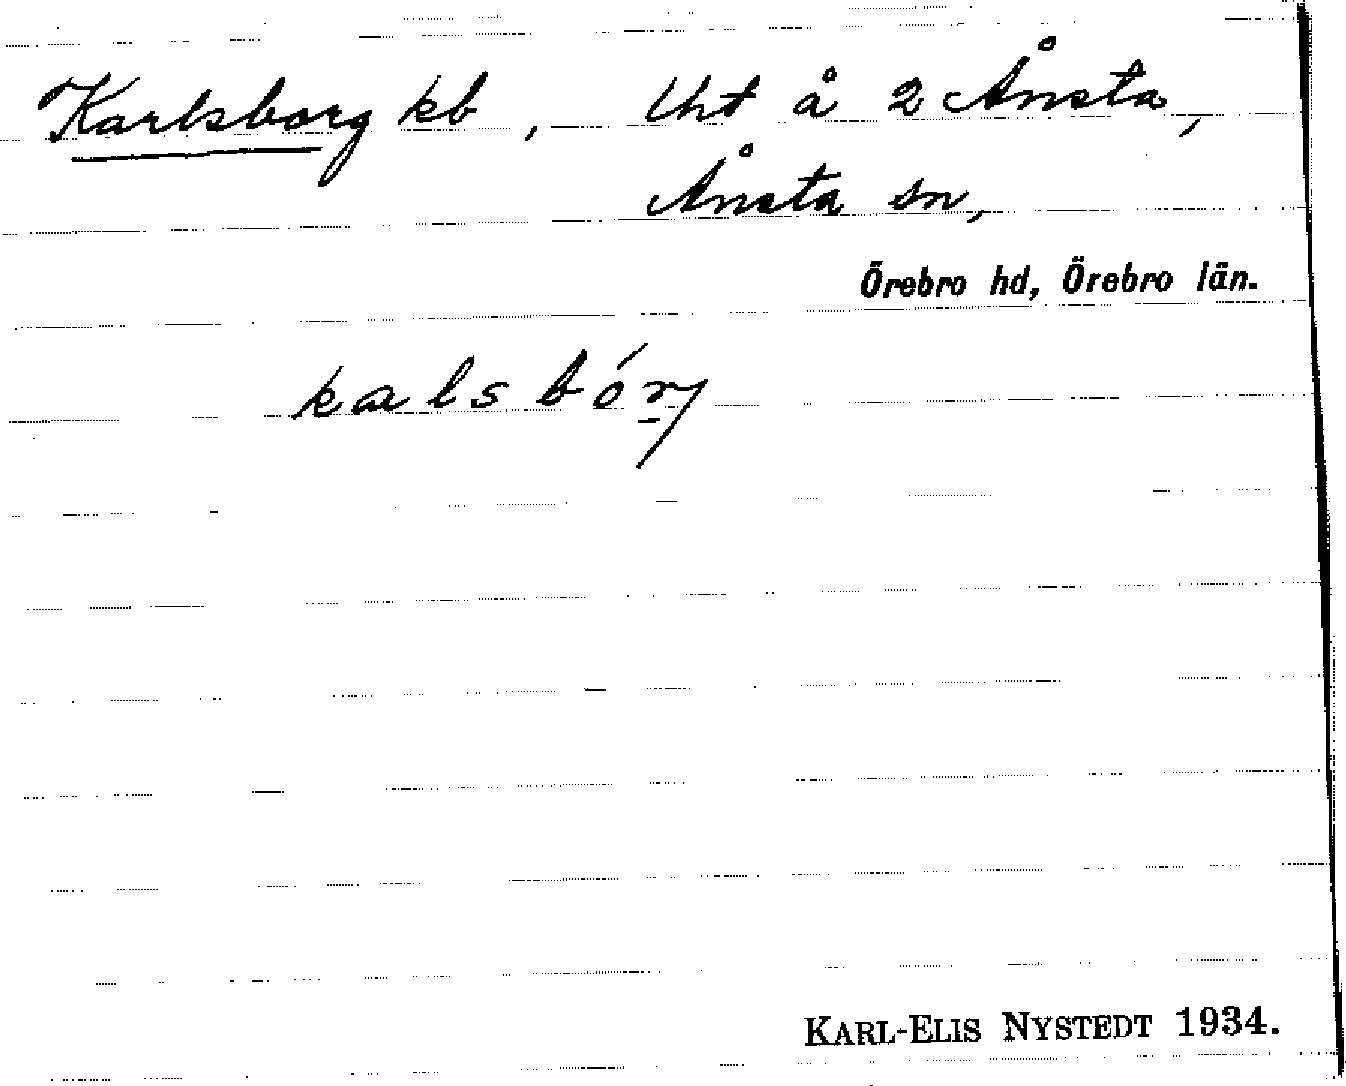 Karlsborg kb, lht å 2 Ånsta,
Ånsta sn,
Örebro hd, Örebro län.
kalsbórj
KARL-ELIS NYSTEDT 1934.